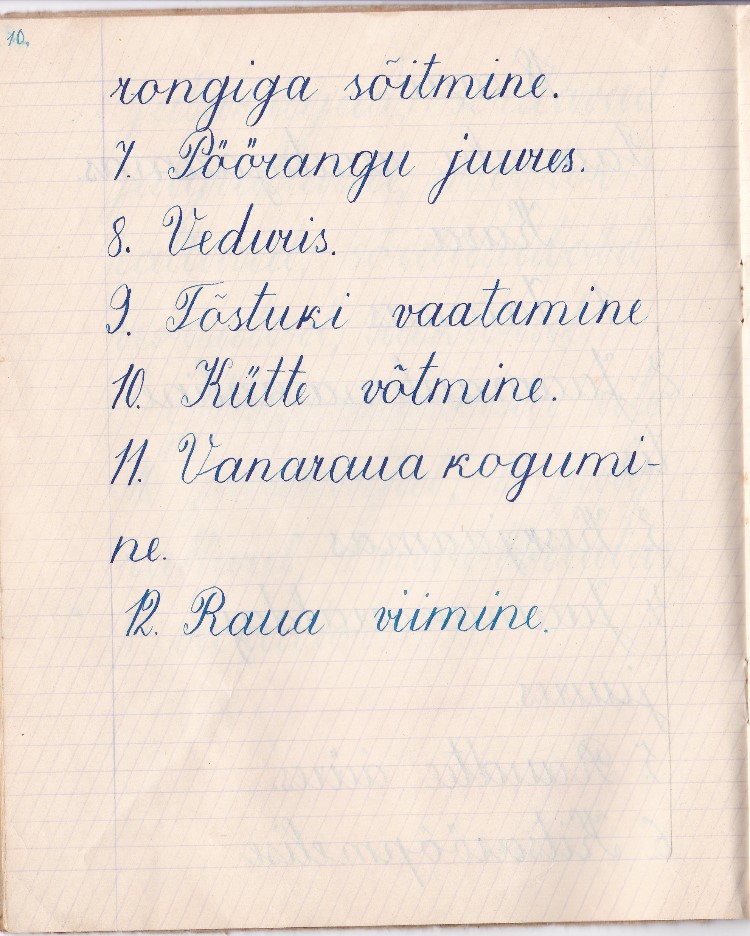 10.
rongiga sõitmine.
7. Pöörangu juures.
8. Veduris.
9. Tõstuki vaatamine
10. Kütte võtmine.
11. Vanaraua kogumi-
ne.
12. Raua viimine.